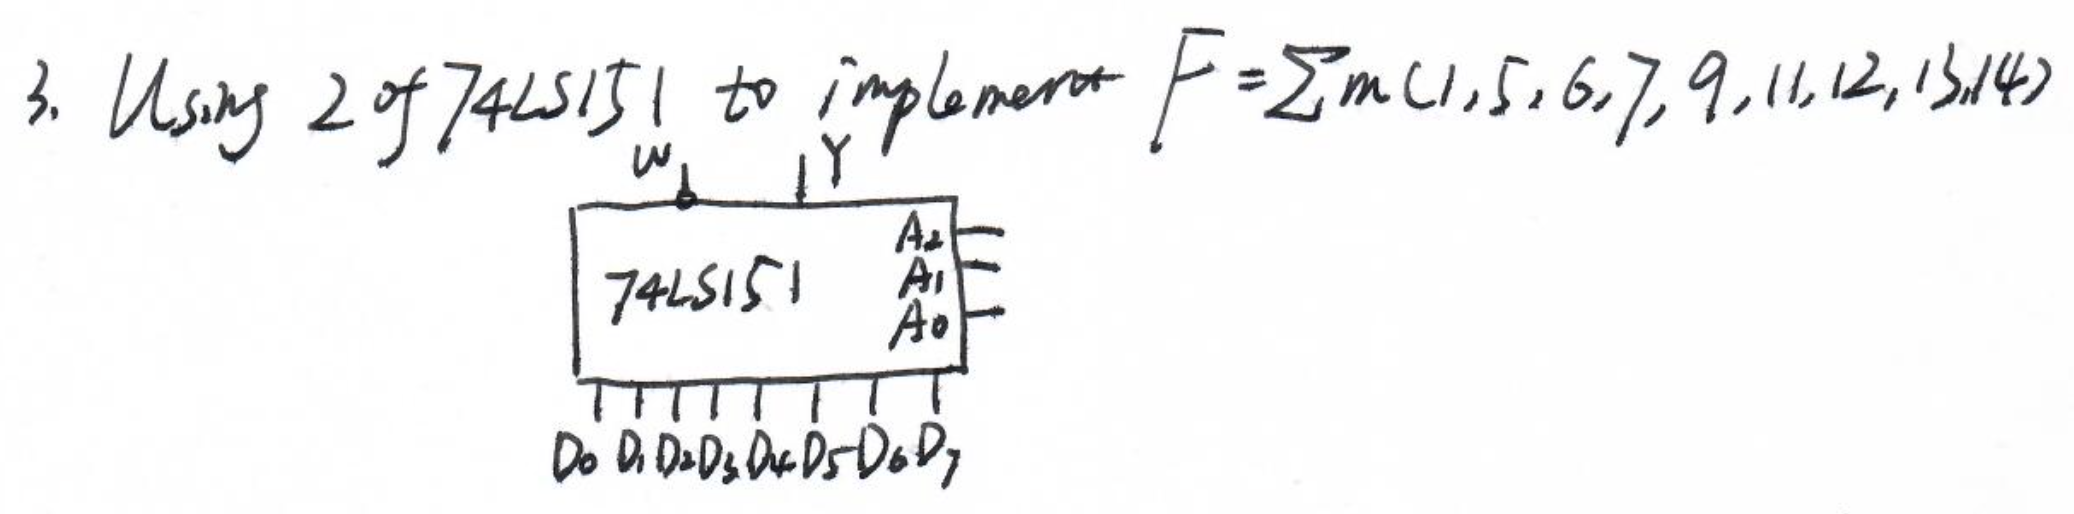 3. Using 2 of 74LS151 to implement F=∑m(1,5,6,7,9,11,12,13,14)
W Y
A2
74LS151 A1
A0
D0 D1 D2 D3 D4 D5 D6 D7